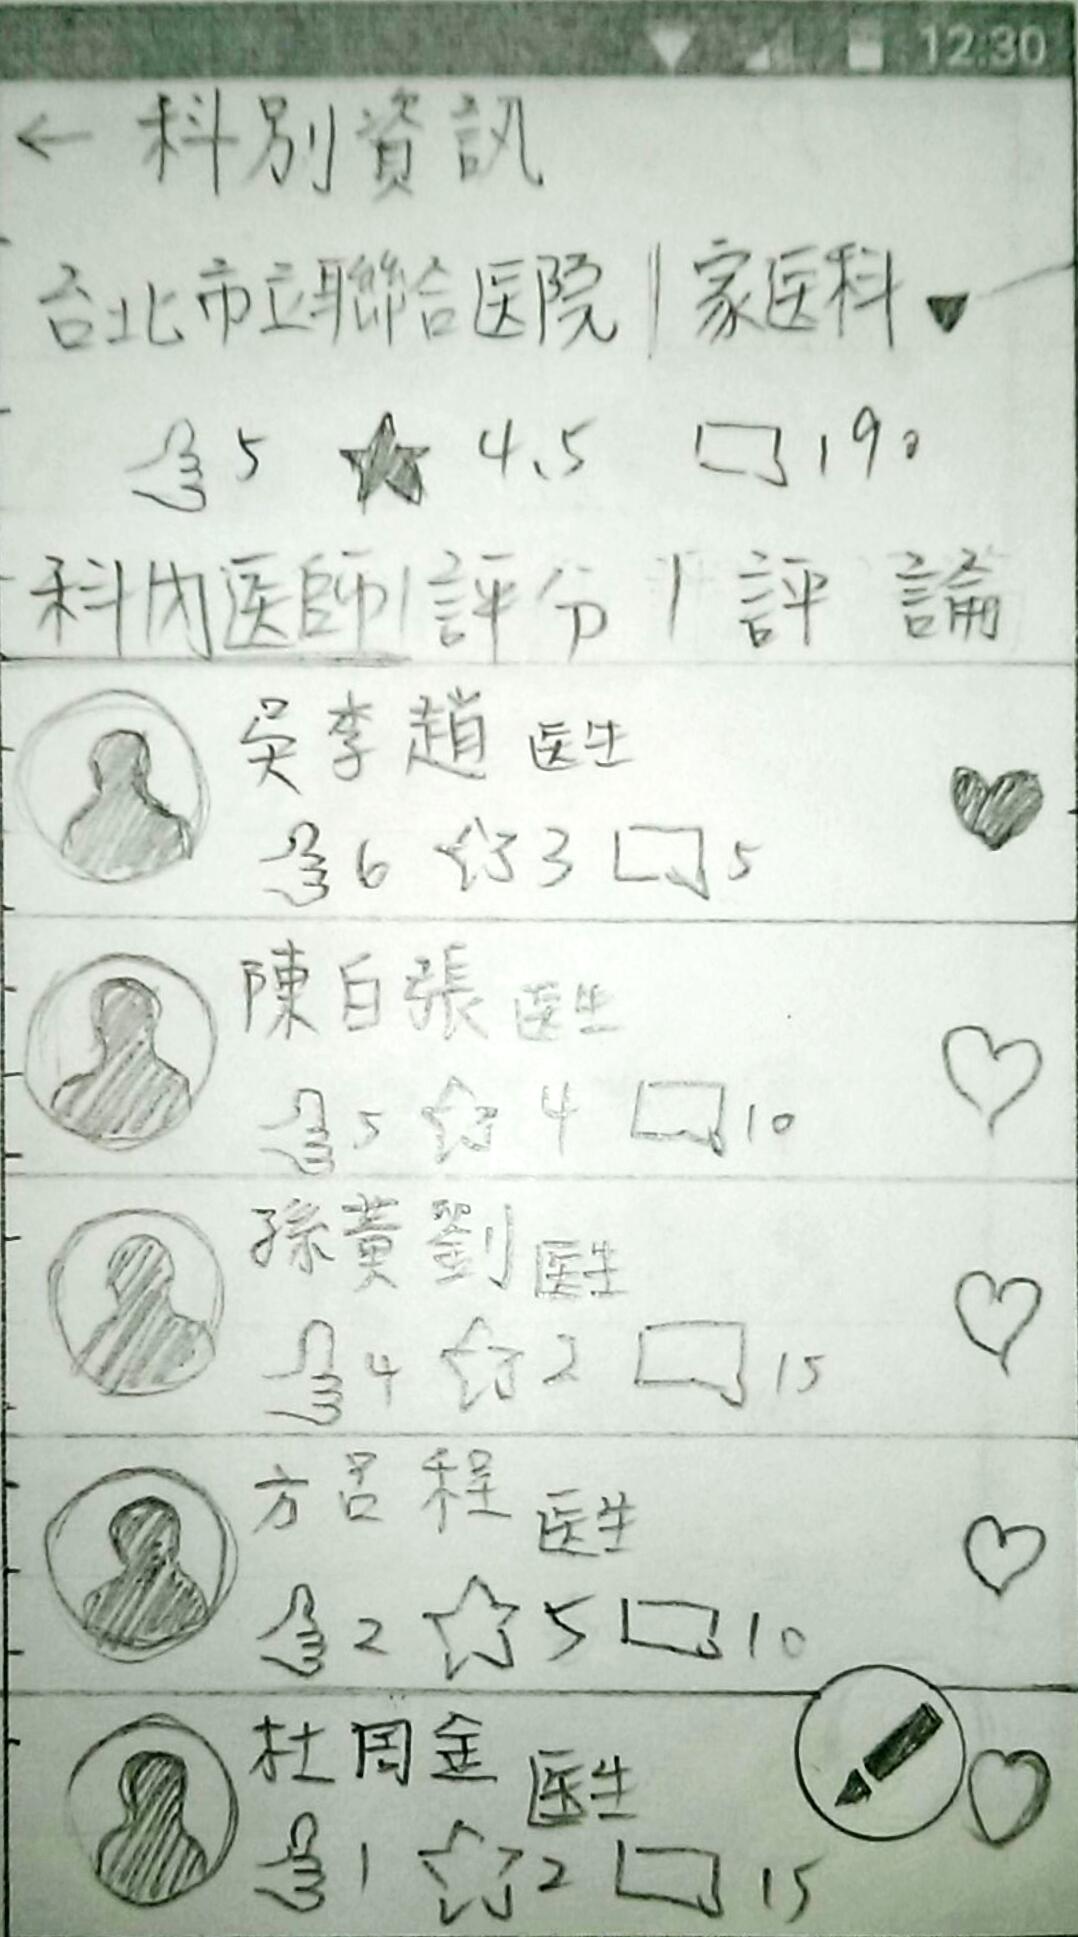 12:30
← 科別資訊
台北市立聯合医院 | 家医科
5 4.5 190
科內医師 | 評分 | 評論
吳李趙 医生
6 3 5
陳白張 医生
5 4 10
孫黃劉 医生
4 2 15
方呂程 医生
2 5 10
杜周金 医生
1 2 15